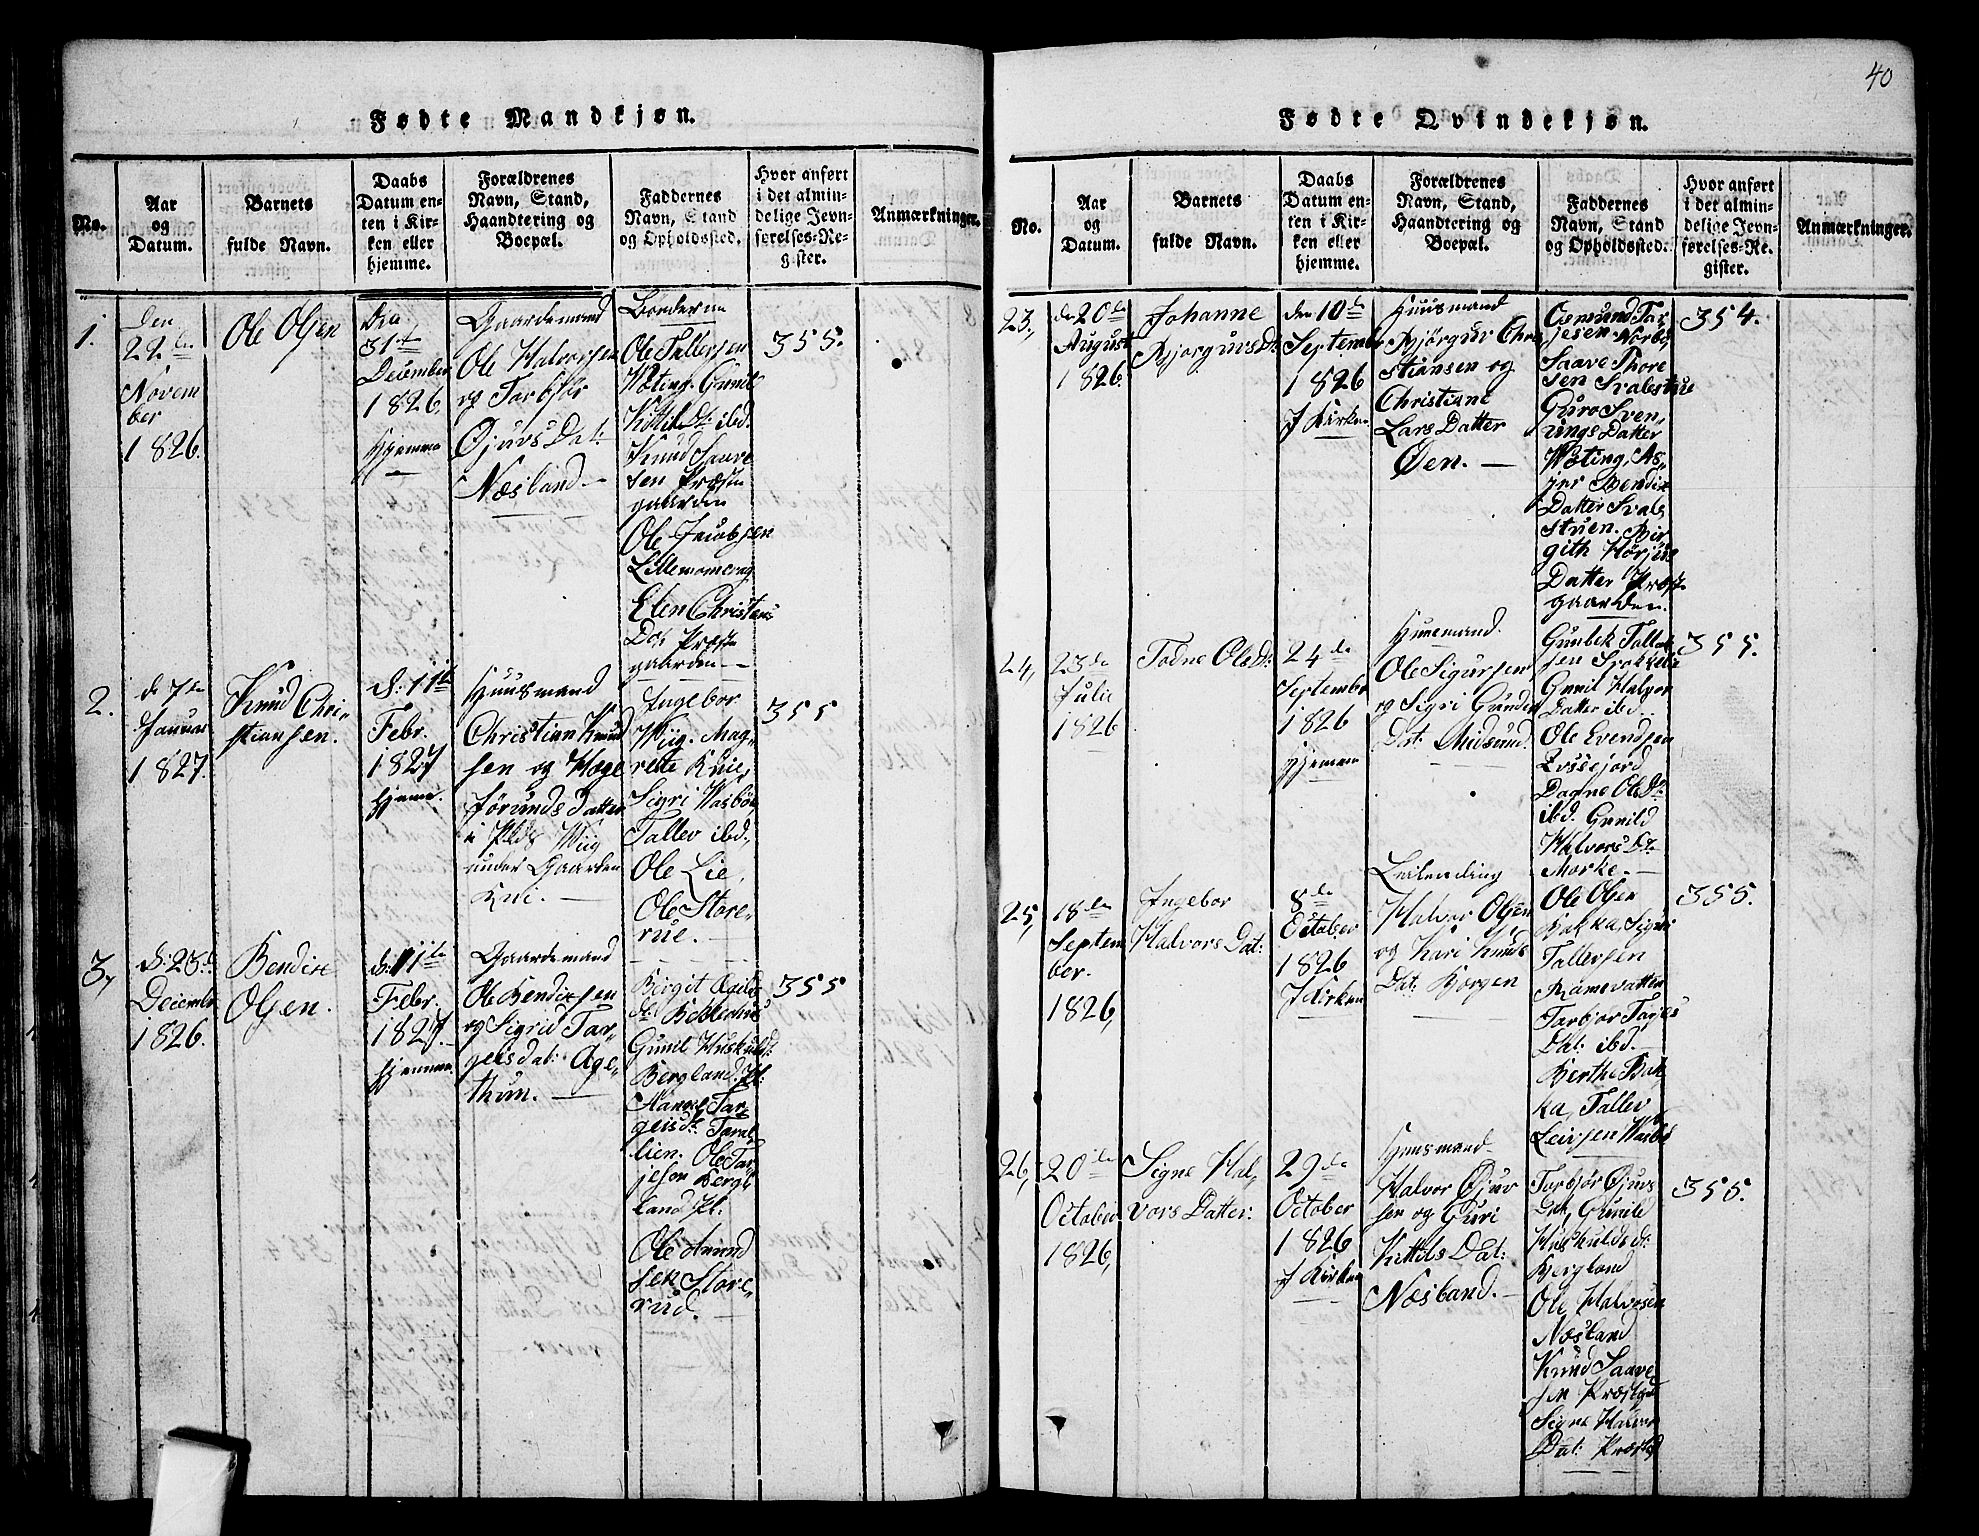 40
Fødte Mandkjøn.
No.
Aar
og
Datum.
Barnets
fulde Navn.
Daabs
Datum en-
ten i Kir-
ken eller
hjemme.
Forældrenes
Navn, Stand,
Haandtering og
Boepæl.
Faddernes
Navn, Stand
og Opholdssted.
Hvor anført
i det almin-
delige Jevn-
førelses-Re-
gister.
Anmærkninger.
1.
Den
22de
Novem
ber
1826.
Ole Olsen
Dea
31te
December
1826,
Hjemme
Gaardemand
Ole Halvorsen
og Torbjør
Øjuvs Dat:
Næsland.
Bønderne
Ole Tallefsen
Wøting. Gunil
Kittil Dt. ibd.
Knud Saave
sen Præste
gaarden
Ole Jacobsen
Ellen Christens
Dr. Præste
gaarden
355.
2.
d. 7de
Januar
1827.
Knud Chri-
stiansen.
d: 11te
Febr.
1827
Hjeme.
Huusmand
Christian Knud
sen og Hæge
Jørunds Datter
i Plds Wiig
under Gaarden
Kni.
Ingebor
Wiig. Mag-
rette Knie,
Sigri Wasbøe
Tallev ibd.
Ole Lie,
Ole Store-
rue.
355
3,
d: 23d
Decembr
1826.
Bendix
Olsen.
d: 11te
Febr.
1827.
Hjemme.
Gaardemand
Ole Bendixsen
og Sigrid Tar-
geisdat: Age-
thun.
Birgit
Gunil
Bergland.
Targeisd:
lien. Ole Tar-
jesen Berg-
land
Ole Amund
sen Store-
rud.
355
Fødte Qvindekjøn.
No.
Aar
og
Datum.
Barnets
fulde Navn.
Daabs
Datum en-
ten i Kir-
ken eller
hjemme.
Forældrenes
Navn, Stand,
Haandtering og
Boepæl.
Faddernes
Navn, Stand
og Opholdssted.
Hvor anført
i det almin-
delige Jevn-
førelses-Re-
gister.
Anmærkninger.
23,
d. 20de
August
1826.
Johanne
Bjørguvs Dt.
den 10de
September
1826
I Kirken
Huusmand
Bjørguv Chri
stiansen og
Christiane
Lars Datter
Øen.
Osmund Tar
jesen
Saave Thore
sen Svalestue
Guro Sven,
ungs Datter
Wøting, As,
Bendix
Datter Svale
stuen. Bir
gith
Datter Præste
gaarden.
354.
24,
23de
Julii
1826
Tone Ols Dt:
24de
September
1826
Hjemme
Huusmand.
Ole Sigursen
og Sigri Gunder
Dat: Midsund.
Gunlek Tallef
sen
Gunil Halvor
Datter ibd.
Ole Evendsen
Dagne Ols Dt.
ibd. Gunild
Halvors Dt.
Morke.
355.
25,
18de
Septem
ber.
1826,
Ingebor
Halvors Dat:
8de
October
1826
I Kirken
Leilending
Halvor Olsen
og Kari Knuds
Dat: Borgen
Ole Olsen
Bakka, Sigur
Tallefsen
Ramsvatten
Torbjør
Dat: ibd.
Berthe Bak
ka, Tallev
Leivsen Wasbø
355.
26,
20de
October
1826,
Signe Hal,
vors Datter:
29de
October
1826
I Kirken
Huusmand
Halvor Øjuv
sen og Guri
Kittils Dat:
Næsland.
Torbjør Øjuvs
Dat, Gunild
Huskuldsd:
Bergland
Ole Halvorsen
Næsland
Knud Saave
sen Præstgd
Signe Halvor
Dat: Præstgd
355.